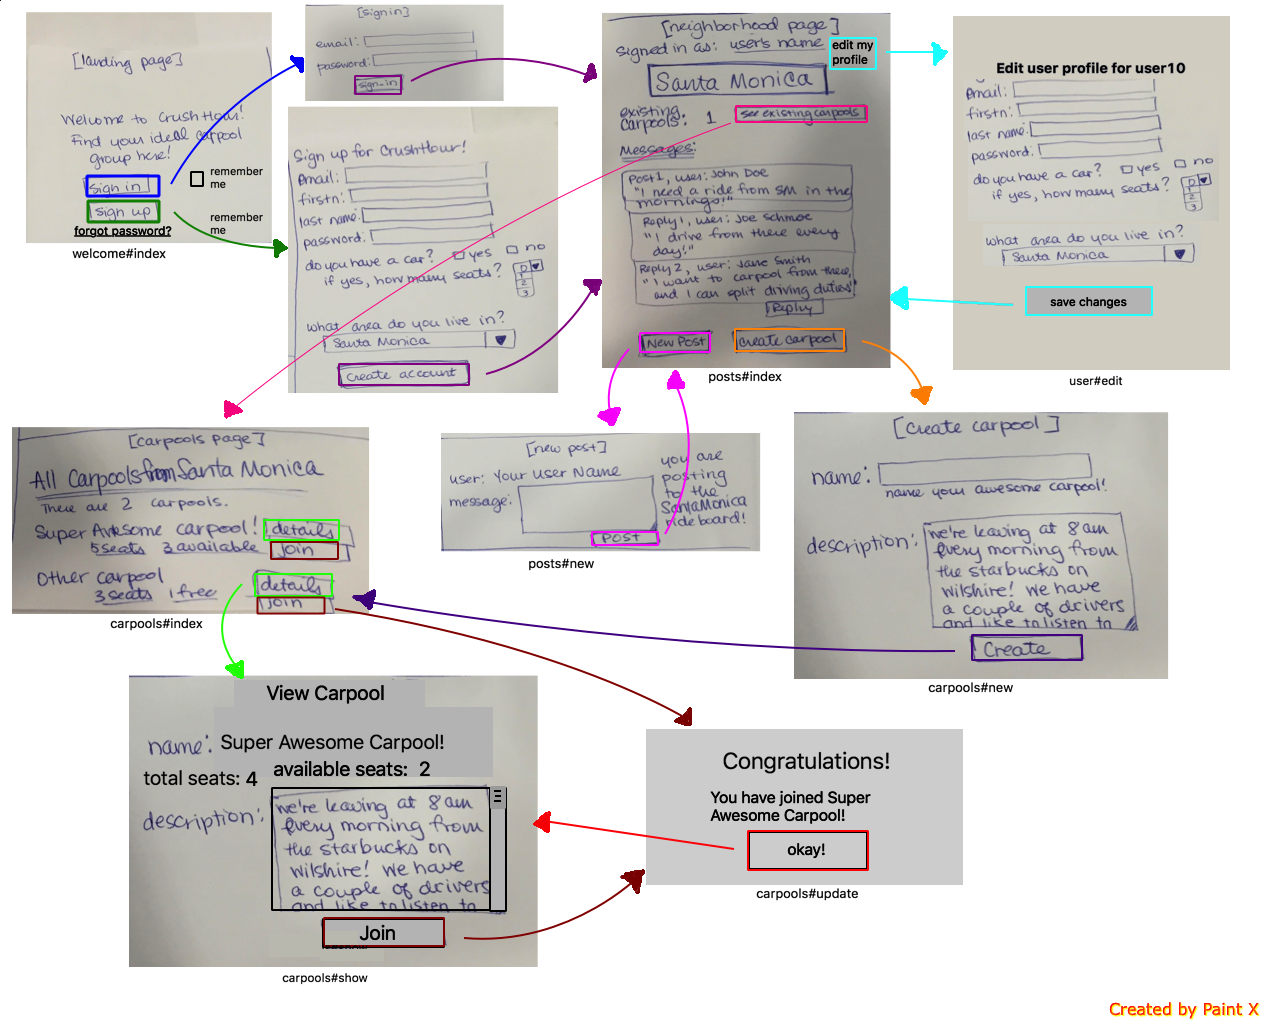 [landing page]
Welcome to CrushHour!
Find your ideal carpool
group here!
sign in
remember
me
sign up
remember
me
forgot password?
welcome#index
[signin]
email:
password:
sign-in
Sign up for CrushHour!
Email:
firstn:
last name:
password:
do you have a car? yes no
if yes, how many seats? 0
1
2
3
what area do you live in?
Santa Monica
create account
[neighborhood page]
signed in as: user's name
edit my
profile
Santa Monica
existing
carpools: 1
see existing carpools
Messages:
Post 1, user: John Doe
"I need a ride from SM in the
mornings!"
Reply 1, user: Joe Schmoe
"I drive from there every
day!"
Reply 2, user: Jane Smith
"I want to carpool from there,
and I can split driving duties"
Reply
New Post
create carpool
posts#index
Edit user profile for user10
Email:
firstn:
last name:
password:
do you have a car? yes no
if yes, how many seats? 0
1
2
3
what area do you live in?
Santa Monica
save changes
user#edit
[carpools page]
All Carpools from Santa Monica
There are 2 carpools.
Super Awesome carpool! details
5 seats 3 available join
Other carpool details
3 seats 1 free join
carpools#index
[new post]
user: Your User Name
message:
you are
posting
to the
Santa Monica
rideboard!
POST
posts#new
[create carpool]
name:
name your awesome carpool!
description:
we're leaving at 8am
every morning from
the starbucks on
wilshire! we have
a couple of drivers
and like to listen to
Create
carpools#new
View Carpool
name: Super Awesome Carpool!
total seats: 4 available seats: 2
description:
we're leaving at 8am
every morning from
the starbucks on
wilshire! we have
a couple of drivers
and like to listen to
Join
carpools#show
Congratulations!
You have joined Super
Awesome Carpool!
okay!
carpools#update
Created by Paint X